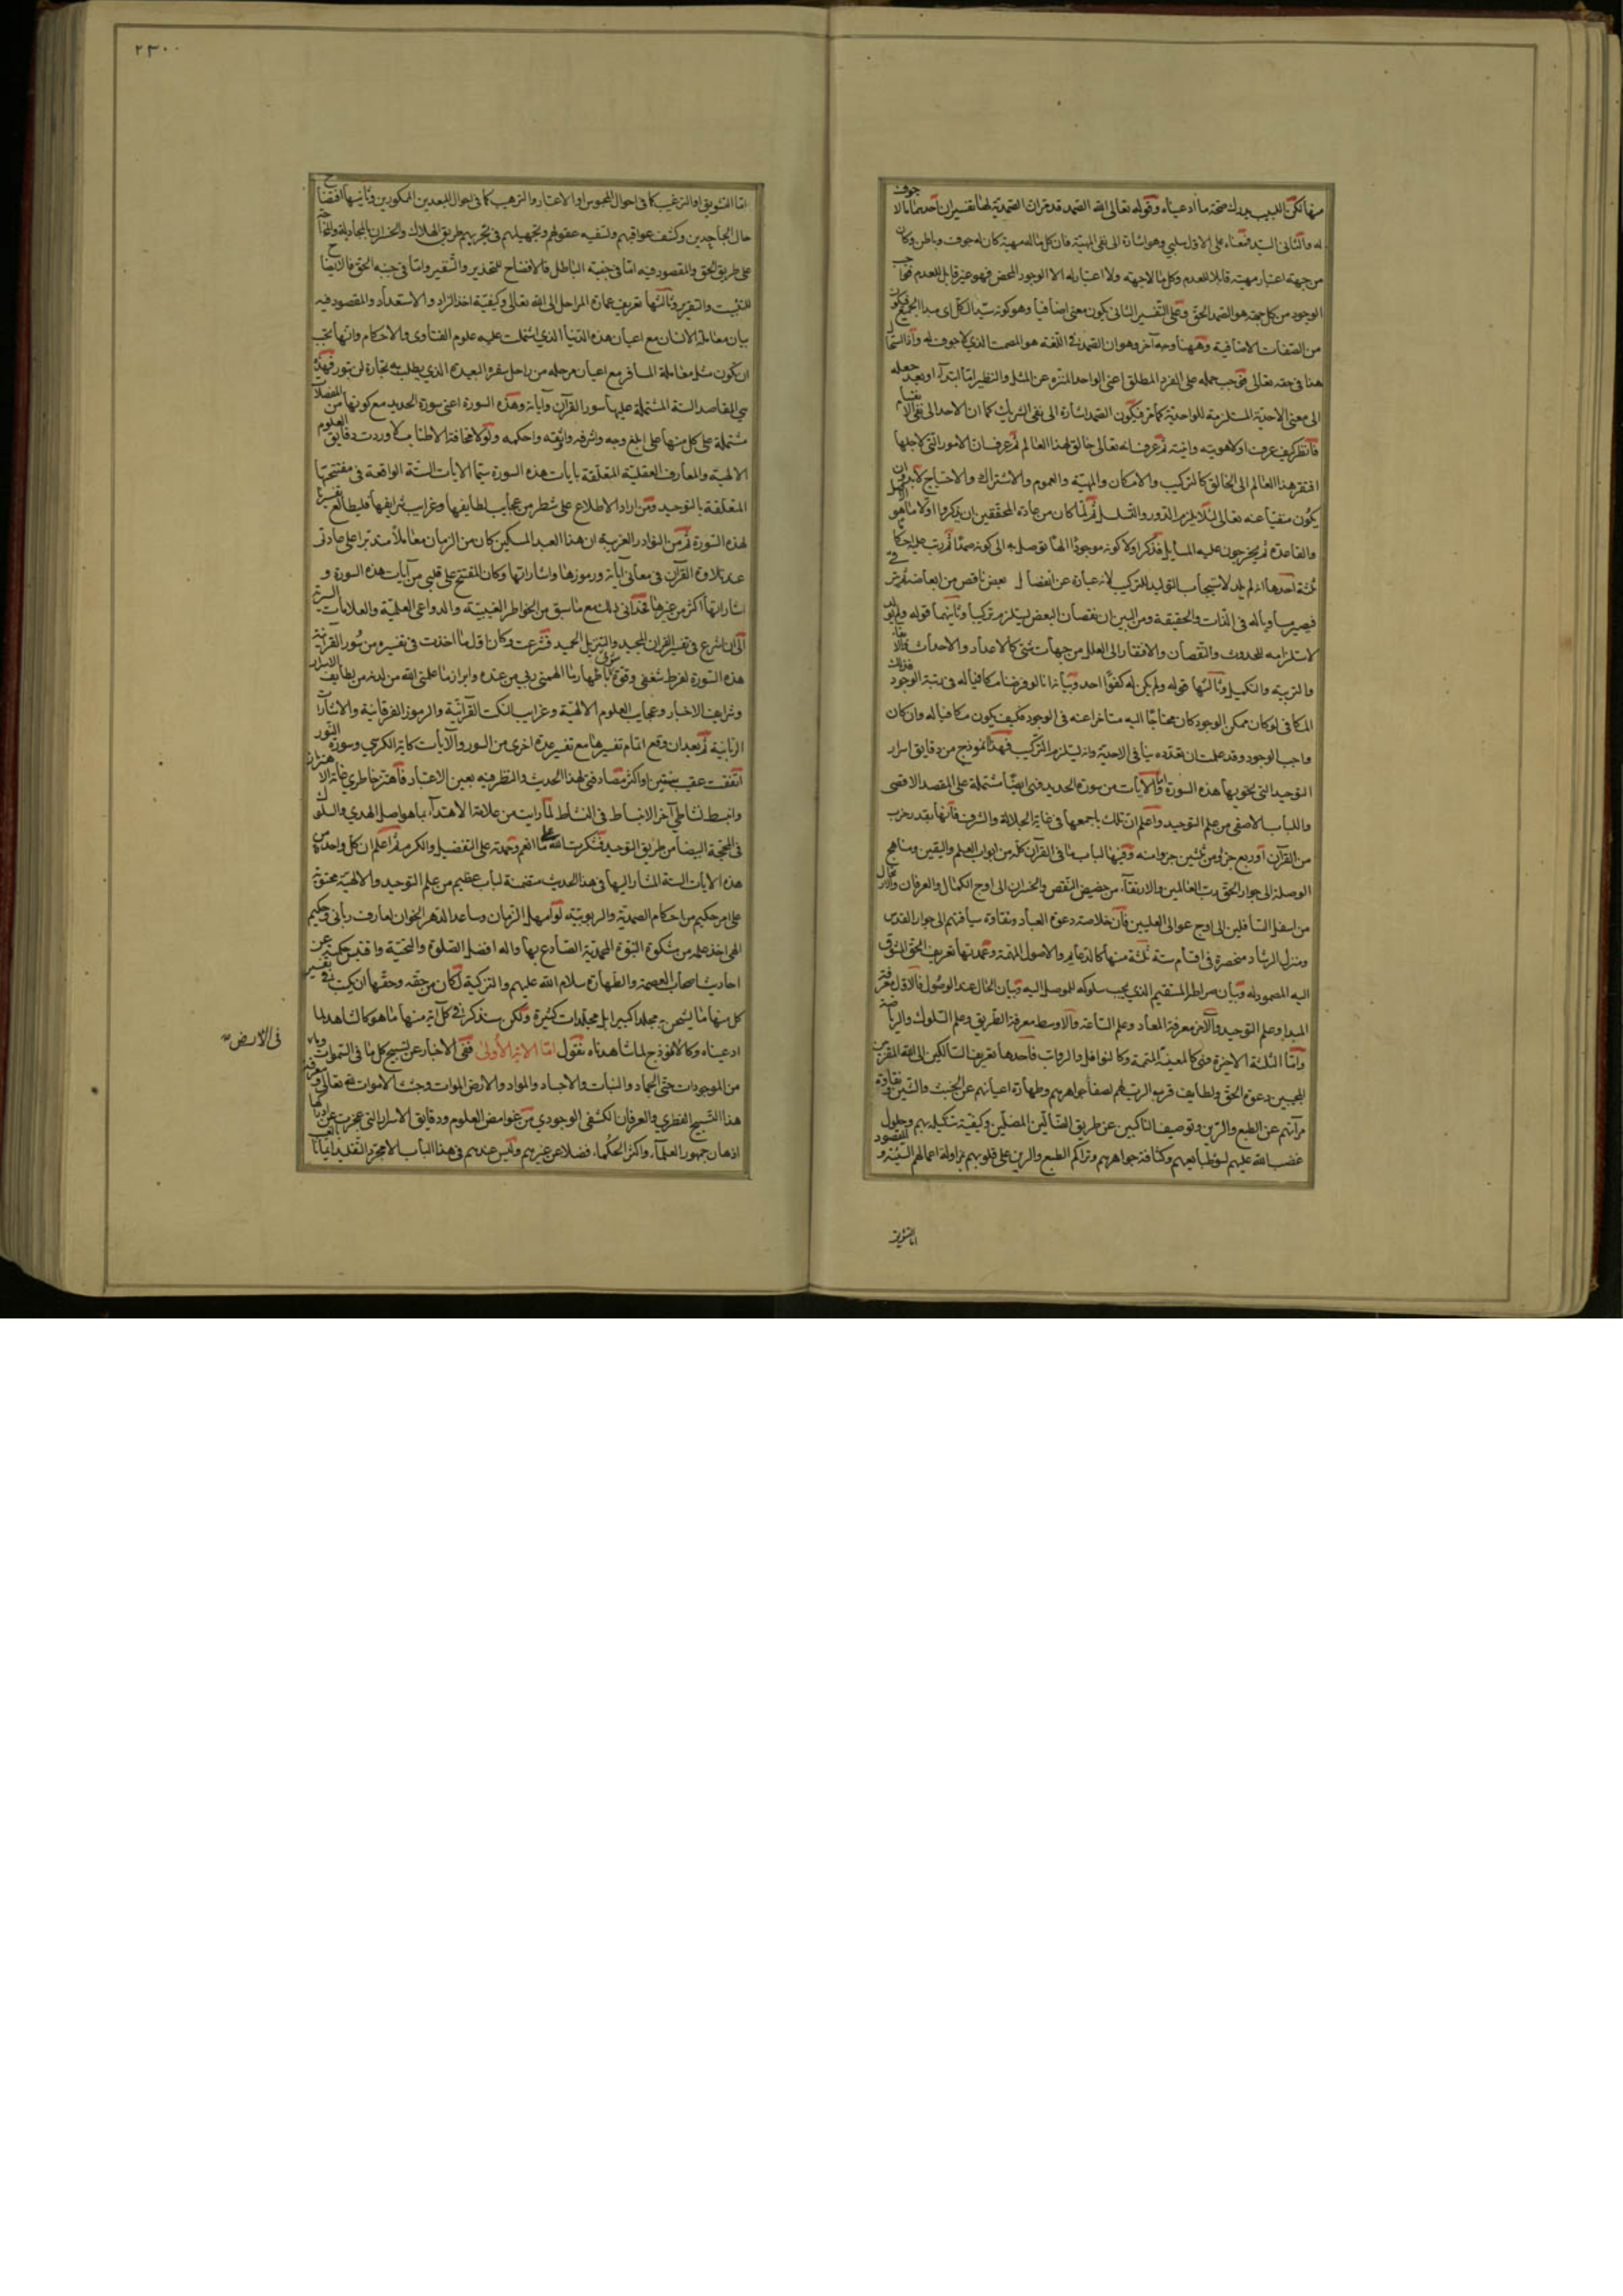 منها تكن اللبيب يدرك صحة ما ادعيناه وقوله تعالى الله الصمد قد مر ان الصمدية لها تفسيران احدهما ما لا جوف
له والثانى السيد فمعناه على الاول سلبي وهو اشارة الى نفى المهية فان كل ما له مهية كان له جوف وباطن وكان
من جهة اعتبار مهيته قابلا للعدم وكل ما لا جهة ولا اعتبار له الا الوجود المحض فهو غير قابل للعدم فواجب
الوجود من كل جهة هو الصمد الحق وعلى التفسير الثانى يكون معنى اضافيا وهو كونه سيد الكل اى مبدأ الجميع فيكون
من الصفات الاضافية وههنا وجه آخر وهو ان الصمد فى اللغة هو المصمت الذى لا جوف له واذا استحال
هذا فى حقه تعالى فوجب حمله على الفرد المطلق اعنى الواحد المنزه عن المثل والنظير اما ابتداء او بعد جعله
الى معنى الاحدية المستلزمة للواحدية كما مر فيكون الصمد اشارة الى نفى الشريك كما ان الاحد الى نفى الانقسام
فانظر كيف عرف اولا هويته وانيته ثم عرف انه تعالى خالق لهذا العالم ثم عرف ان الامور التى لاجلها
افتقر هذا العالم الى الخالق كالتركيب والامكان والمهية والعموم والاشتراك والاحتياج لابد وان
يكون منفيا عنه تعالى لئلا يلزم الدور والتسلسل ثم لما كان من عادة المحققين ان يذكروا اولا ما هو الاصل
والقاعدة ثم يخرجون عليه المسايل فذكر اولا كونه موجودا الها توصل به الى كونه صمدا ثم رتب عليه احكاما
ثلثة احدها انه لم يلد لاستيجاب التوليد للتركيب لانه عبارة عن انفصال بعض ناقص من ابعاضه ثم يترقى
فيصير مساويا له فى الذات والحقيقة ومن البين ان نقصان البعض يستلزم تركيبا وثانيها قوله ولم يولد
لاستلزامه للحدوث والنقصان والافتقار الى العلل من جهات شتى كالاعداد والاحداث والابقاء
والتربية والتكميل وثالثها قوله ولم يكن له كفوا احد وبيانه انا لو فرضنا مكافيا له فى رتبة الوجود فذلك
المكافى لو كان ممكن الوجود كان محتاجا اليه متاخرا عنه فى الوجود فكيف يكون مكافيا له وان كان
واجب الوجود وقد علمت ان تعدده ينافى الاحدية وانه يستلزم التركيب فهذا انموذج من دقايق اسرار
التوحيد التى يحتويها هذه السورة واما الآيات من سورة الحديد فهى ايضا مشتملة على المقصد الاقصى
واللباب الاصفى من علم التوحيد واعلم ان تلك باجمعها فى غاية الجلالة والشرف فانها بقدر حزب
من القرآن او ربع جزو من ثلثين جزوا منه وفيها لباب ما فى القرآن كله من ابواب العلم واليقين ومناهج
الوصلة الى جوار الحق رب العالمين والارتقاء من حضيض النقص والخسران الى اوج الكمال والعرفان
من اسفل السافلين الى اوج عوالى العليين فان خلاصة دعوة العباد ونقاوة سياقتهم الى جوار القدس
ومنزل الرشاد منحصرة فى اقسام ستة ثلثة منها كالدعايم والاصول المهمة وعمدتها تعريف الحق المشوق
اليه المصمود له وبيان صراط المستقيم الذى يجب سلوكه للوصل اليه وبيان الحال عند الوصول فالاول معرفة
المبدا وعلم التوحيد والآخر معرفة المعاد وعلم الساعة والاوسط معرفة الطريق وعلم السلوك والرياضة
واما الثلثة الاخيرة فهى كالمعينة المتمة وكالنوافل والرواتب فاحدها تعريف السالكين الى الله المقربين
المجيبين دعوة الحق ولطايف قربة الرب لهم لصفا جواهرهم وطهارة اعيانهم عن الخبث والشين ونقاوة
مرآتهم عن الطبع والرين وتوصيف الناكبين عن طريق الضالين المضلين وكيفية تنكيله بهم وحلول
غضب الله عليهم لسوء طبايعهم وكثافة جواهرهم وتراكم الطبع والرين على قلوبهم بمزاولة اعمالهم السيئة والمقصود
اما التشويق
٢٣٠٠
اما التشويق او الترغيب كما فى احوال المحبوبين او الاعتبار والترهيب كما فى احوال المبعدين المنكورين وثانيها افتضاح
حال الجاحدين وكشف عوارهم وتسفيه عقولهم وتجهيلهم فى تحريهم طريق الهلاك والخسران بالمجادلة والمحاجة
على طريق الحق والمقصود فيه اما فى جنبة الباطل فالافضاح للتحذير والتنفير واما فى جنبة الحق فالايضاح
للتثبيت والتقرير وثالثها تعريف عمارة المراحل الى الله تعالى وكيفية اخذ الزاد والاستعداد والمقصود فيه
بيان معاملة الانسان مع اعيان هذه الدنيا الذى اشتملت عليه علوم الفتاوى والاحكام وانها يجب
ان يكون مثل معاملة المسافر مع اعيان مرحلة من مراحل سفره البعيدة الذى يطلب به تجارة لن تبور فهذه
هى المقاصد الستة المشتملة عليها سور القرآن وآياته وهذه السورة اعنى سورة الحديد مع كونها من المفصلات
مشتملة على كل منها على ابلغ وجه واشرفه واتقنه واحكمه ولولا مخافة الاطناب لاوردت دقايق العلوم
الالهية والمعارف العقلية المتعلقة بايات هذه السورة سيما الايات الستة الواقعة فى مفتتحها
المتعلقة بالتوحيد ومن اراد الاطلاع على شطر من عجايب لطايفها وغرايب شرايفها فليطالع تفسيرنا
لهذه السورة ثم من النوادر الغريبة ان هذا العبد المسكين كان من الزمان متاملا متدبرا على عادتى
عند تلاوة القرآن فى معانى آياته ورموزها واشاراتها وكان المنفتح على قلبى من آيات هذه السورة و
اشاراتها اكثر من غيرها فحدانى ذلك مع ما سبق من الخواطر الغيبية والدواعى العلمية والعلامات السرية
الى ان اشرع فى تفسير القران المجيد والتنزيل الحميد فشرعت وكان اول ما اخذت فى تفسيره من سور القرآنية
هذه السورة لفرط شغفى وقوة شوقى باظهار ما الهمنى ربى من عنده وابراز ما علمنى الله من لدنه من لطايف الاسرار
وشرايف الاخبار وعجايب العلوم الالهية وغرايب النكت القرآنية والرموز الفرقانية والاشارات
الربانية ثم بعد ان وقع اتمام تفسيرها مع تفسير عدة اخرى من السور والآيات كاية الكرسى وسورة النور
اتفقت عقيب سنتين او اكثر مصادفتى لهذا الحديث والنظر فيه بعين الاعتبار فاهتز خاطرى غاية الاهتزاز
وانبسط نشاطى آخر الانبساط فى النشاط لما رايت من علامة الاهتداء بما هو اصل الهدى والسلوك
فى المحجة البيضا من طريق التوحيد فشكرت الله على ما انعم وحمدته على التفضيل والكرم ثم اعلم ان كل واحدة من
هذه الايات الستة المشار اليها فى هذا الحديث متضمنة لباب عظيم من علم التوحيد والالهية محتوية
على امر حكيم من احكام الصمدية والربوبية لو امهل الزمان وساعد الدهر الخوان لعارف ربانى وحكيم
الهى اخذ علمه من مشكوة النبوة المحمدية الصادع بها واله افضل الصلوة والتحية واقتبس حكمته عن
احاديث اصحاب العصمة والطهارة سلام الله عليهم والتزكية لكان من حقه وحقها ان يكتب فى تفسير
كل منها ما يشحن به مجلدا كبيرا بل مجلدات كثيرة ولكن سنذكر فى كل آية منها ما هو كالشاهد لما
ادعيناه وكالانموذج لما شاهدناه نقول اما الاية الاولى ففى الاخبار عن تسبيح كل ما فى السموات وما
فى الارض
من الموجودات حتى الجماد والنبات والاجساد والمواد والارض الموات وجثث الاموات لله تعالى ومعرفة
هذا التسبيح الفطرى والعرفان الكشفى الوجودى من غوامض العلوم ودقايق الاسرار التى عجزت عن ادراكها
اذهان جمهور العلماء واكثر الحكماء فضلا عن غيرهم وليس عندهم فى هذا الباب الا مجرد التقليد ايمانا بالغيب